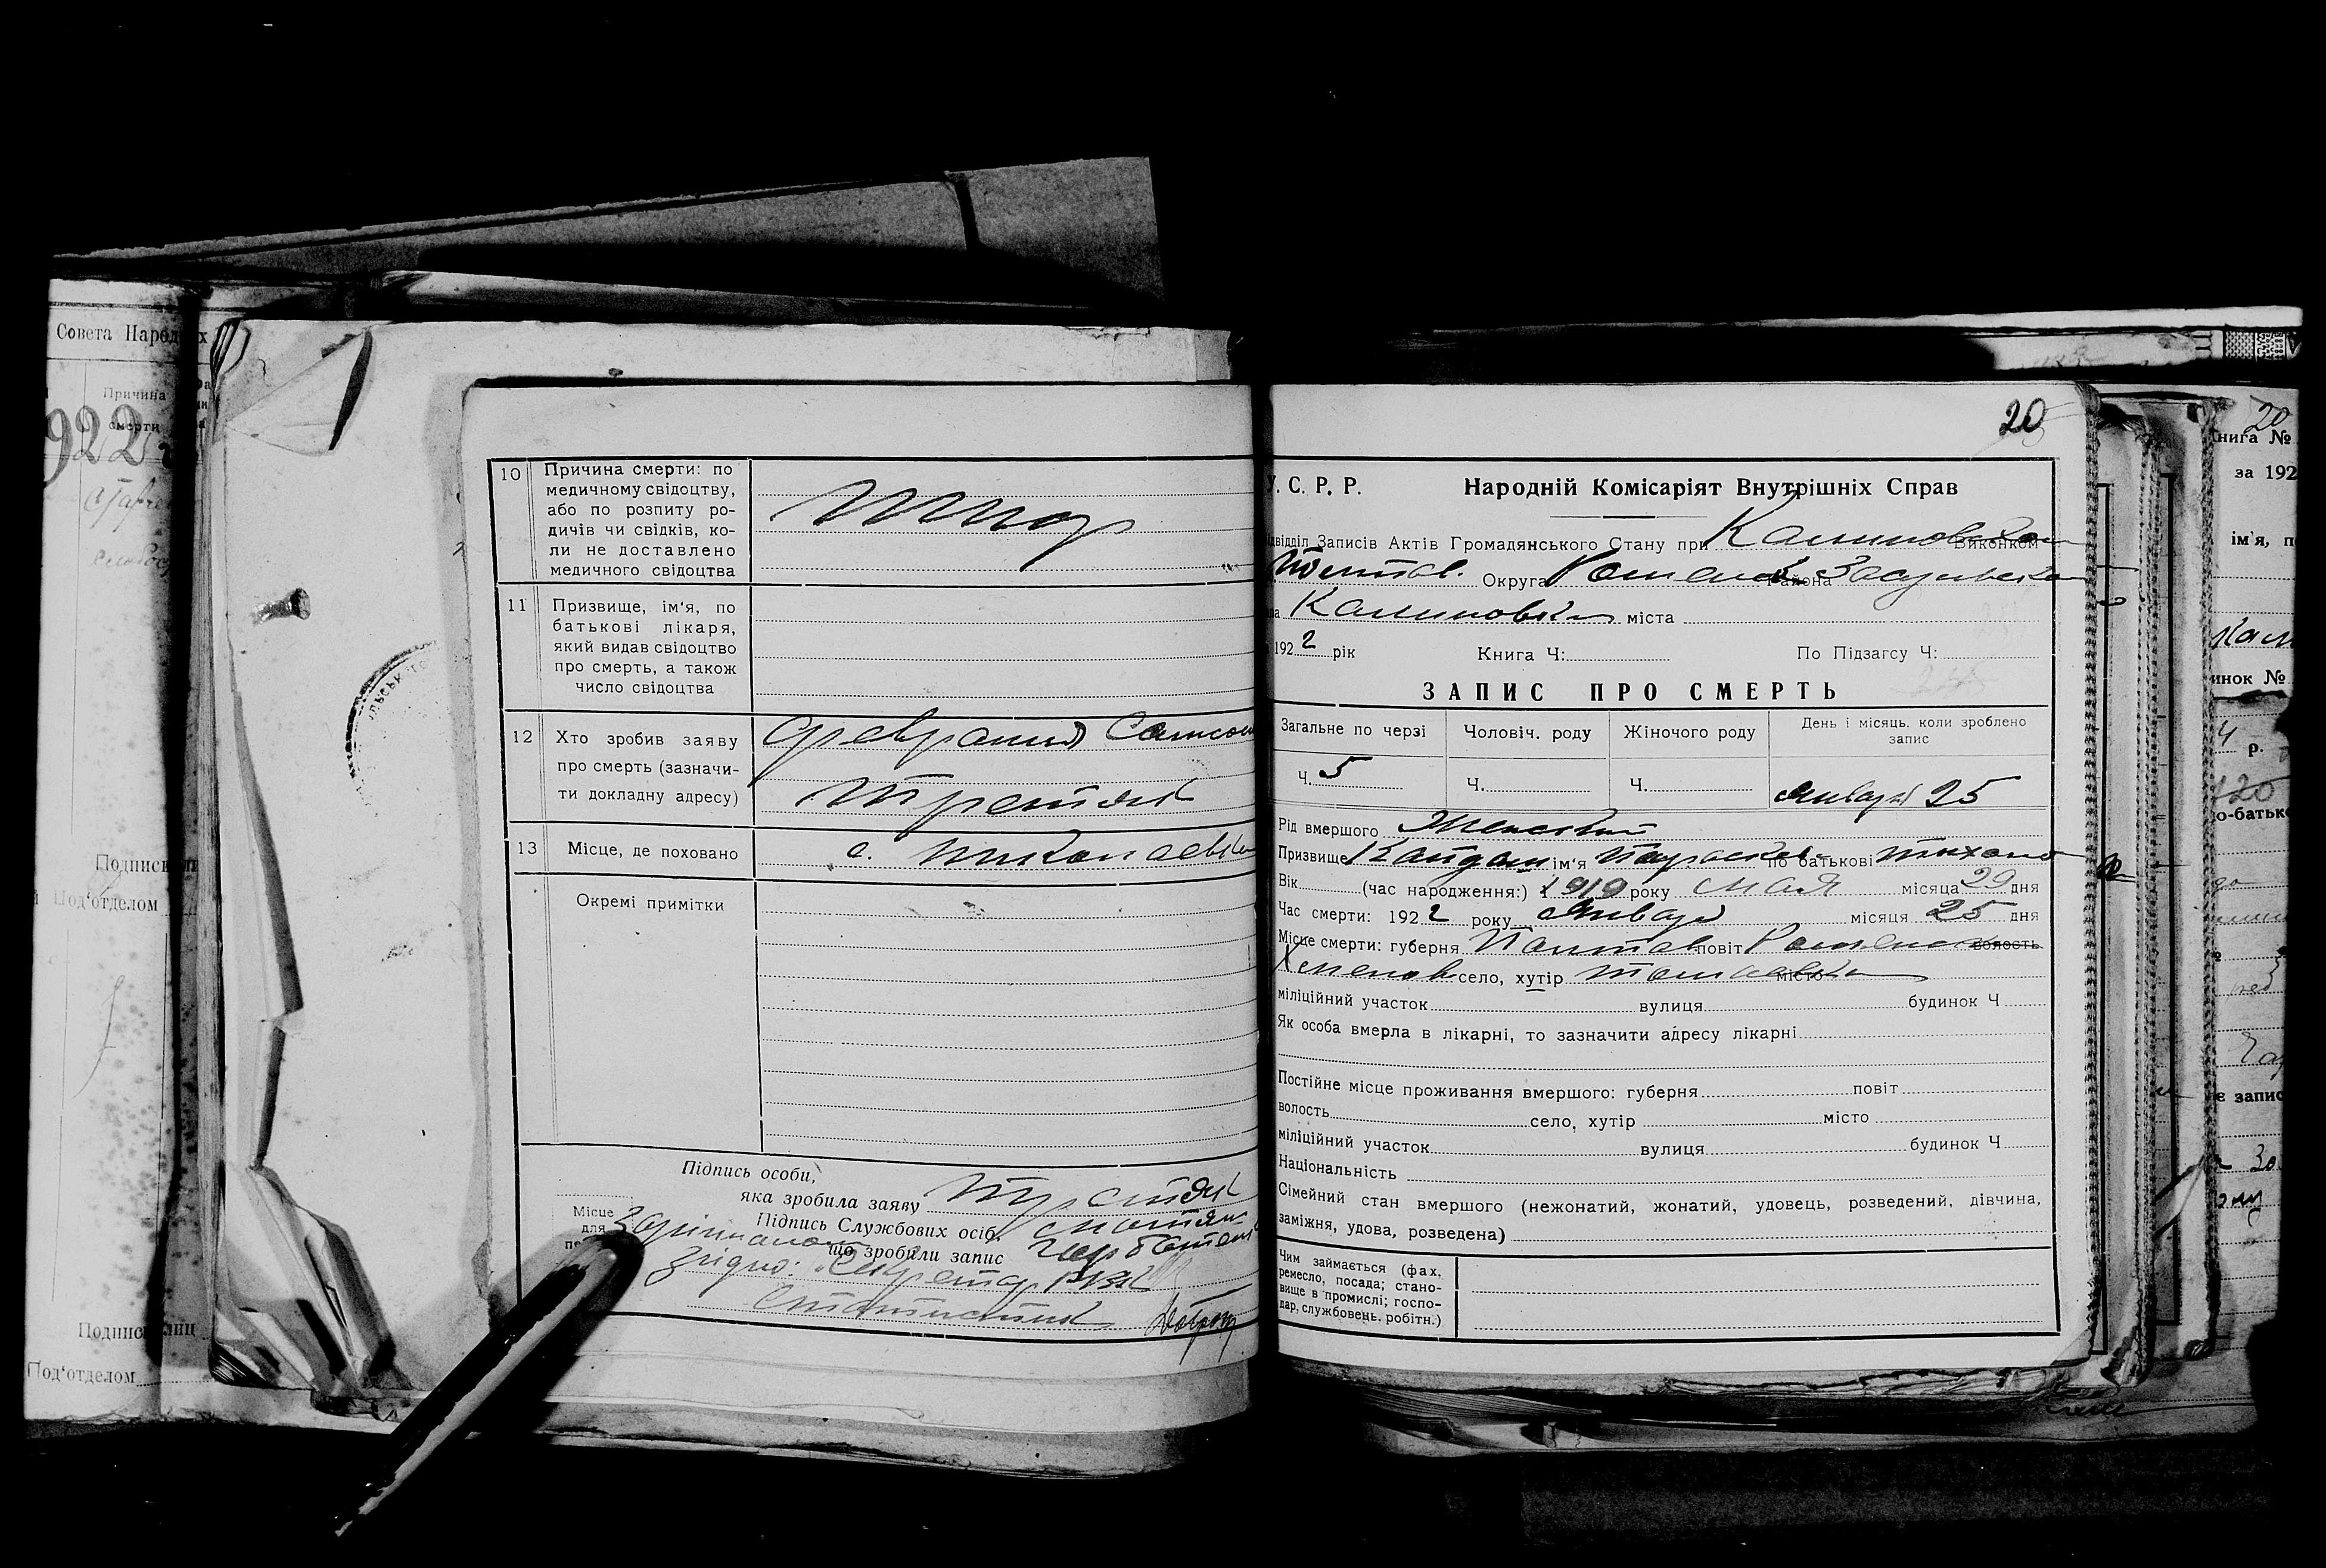 Совета Народ х
Причина
смерти
922
Подписи
Под'отделом
Подписи лиц
Под'отделом
10 Причина смерти: по
медичному свідоцтву,
або по розпиту ро-
дичів чи свідків, ко-
ли не доставлено
медичного свідоцтва
11 Призвище, ім'я, по
батькові лікаря,
який видав свідоцтво
про смерть, а також
число свідоцтва
12 Хто зробив заяву
про смерть (зазначи-
ти докладну адресу)
Третяк
13 Місце, де поховано с. Николаевка
Окремі примітки
Підпись особи,
яка зробила заяву Третяк
Місце
для
Підпись Службових осіб,
що зробили запис
Згідно: Секретар
Статистик
20
У. С. Р. Р. Народній Комісаріят Внутрішніх Справ
Підвідділ Записів Актів Громадянського Стану при Калиновском Виконком
Полтав. Округа Ромен Района Засульском
Калиновка міста
192 2 рік Книга Ч: По Підзагсу Ч:
ЗАПИС ПРО СМЕРТЬ
Загальне по черзі Чоловіч. роду Жіночого роду День і місяць, коли зроблено
запис
Ч. 5 Ч. Ч. Января 25
Рід вмершого Женский
Призвище Кайдаш ім'я Параскева по батькові Тихоно
Вік (час народження:) 1919 року мая місяца 29 дня
Час смерти: 192 2 року Января місяця 25 дня
Місце смерти: губерня Полтав повіт Роменск волость
село, хутір місто
міліційний участок вулиця будинок Ч
Як особа вмерла в лікарні, то зазначити адресу лікарні
Постійне місце проживання вмершого: губерня повіт
волость село, хутір місто
міліційний участок вулиця будинок Ч
Національність
Сімейний стан вмершого (нежонатий, жонатий, удовець, розведений, дівчина,
заміжня, удова, розведена)
Чим займається (фах,
ремесло, посада; стано-
вище в промислі; госпо-
дар, службовень, робітн.)
20
книга №
за 192
ім'я, п
инок №
р.
о-батьк
є запис